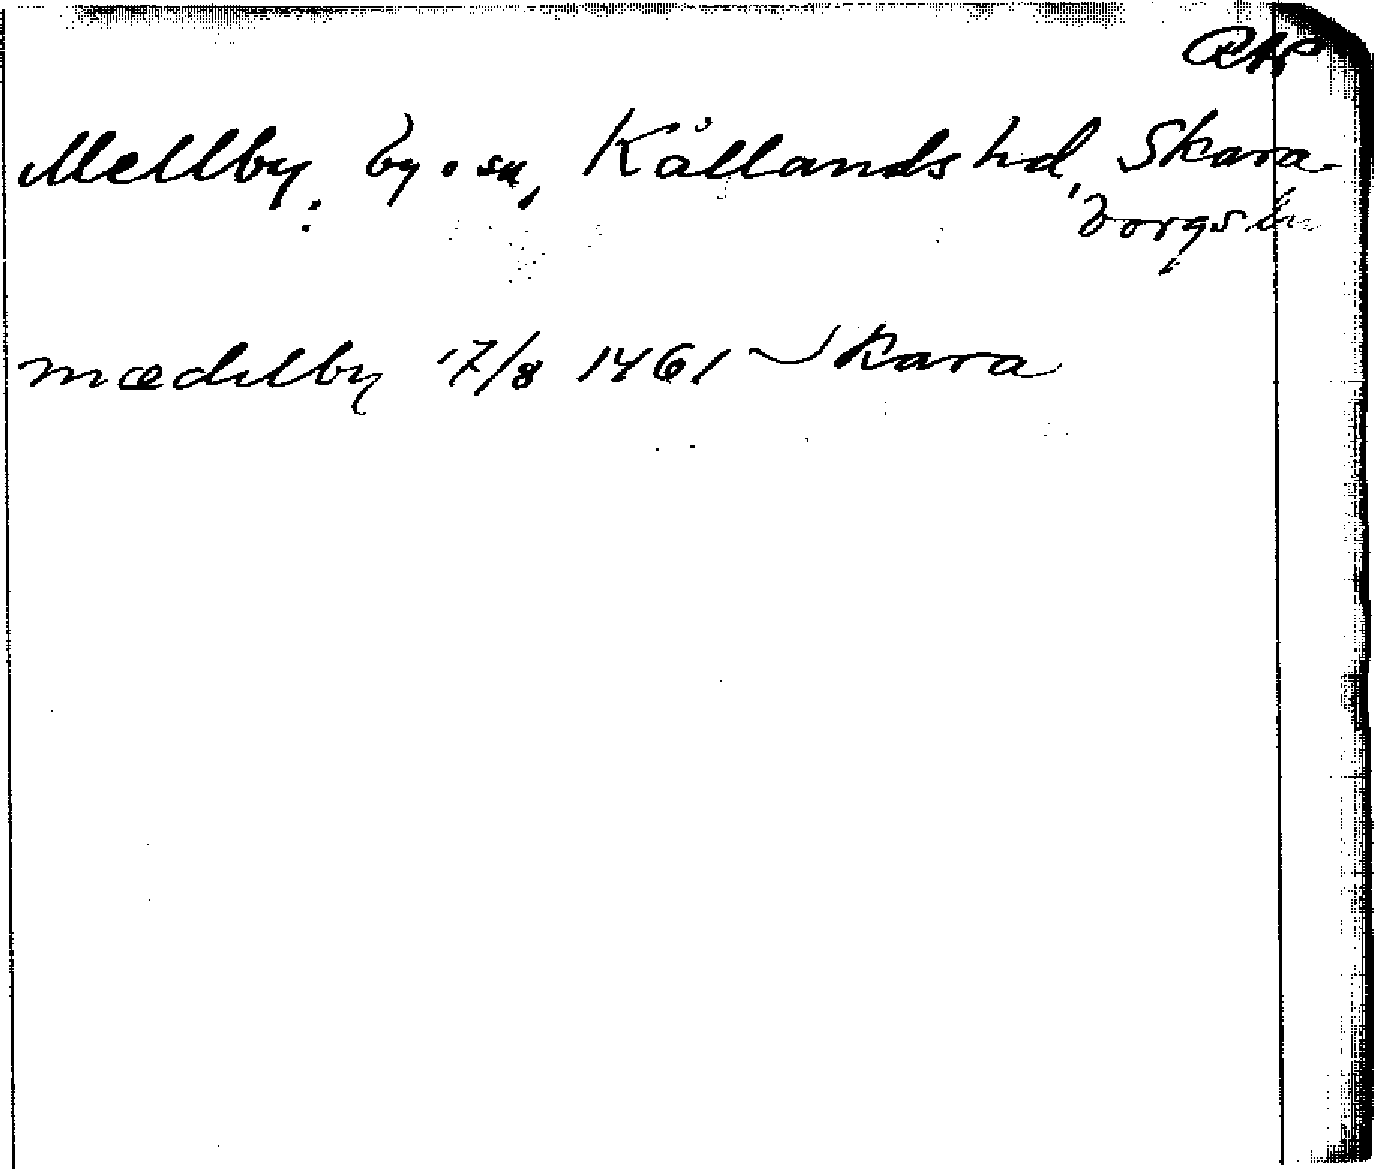 RAP
Mellby, by o. sn, Kållands hd, Skara-
borgs län
mædelby 17/8 1461 Skara